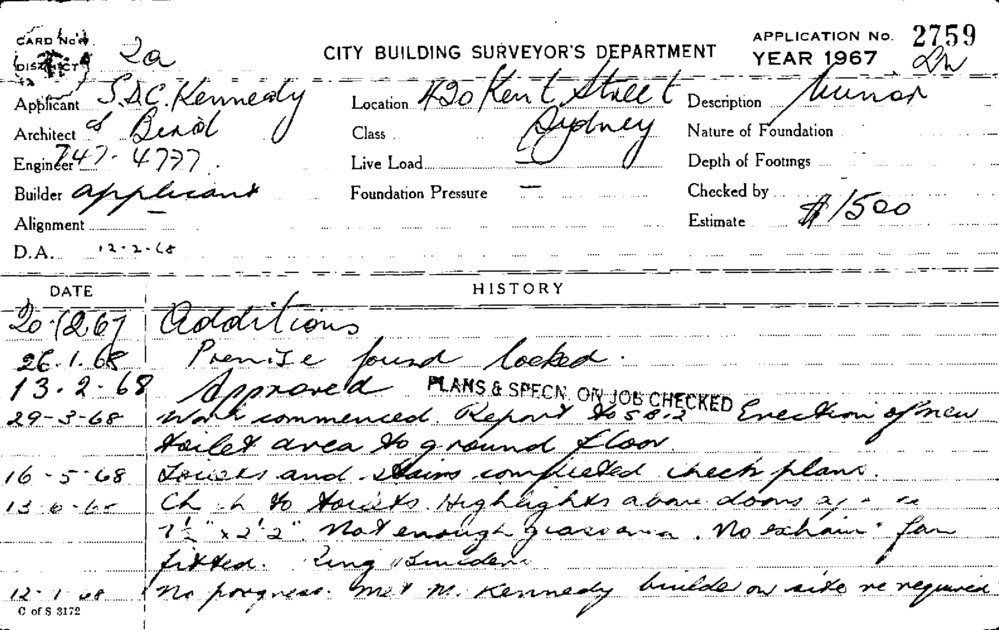 CARD No.
DISTRICT 2a
CITY BUILDING SURVEYOR'S DEPARTMENT
APPLICATION No. 2759
YEAR 1967
Applicant S.D.C. Kennedy
Location 420 Kent Street
Description Minor
Architect & Benol
Class Sydney
Nature of Foundation
Engineer 747-4777.
Live Load
Depth of Footings
Builder applicant
Foundation Pressure —
Checked by
Alignment —
Estimate $1500
D.A. 12-2-68
DATE HISTORY
20.12.67 Additions
26.1.68 Premise found locked.
13.2-68 Approved PLANS & SPECN. ON JOB CHECKED
29-3-68 Work commenced. Report to S.B.12 Erection of new
toilet area to ground floor.
16-5-68 Toilets and stairs completed check plans.
to toilets. Highlights above doors
7½" x 2'2". Not enough glass area. No fan
fitted. Ring
No porgress. Met Mr. Kennedy builder on site re required
C of S 3172